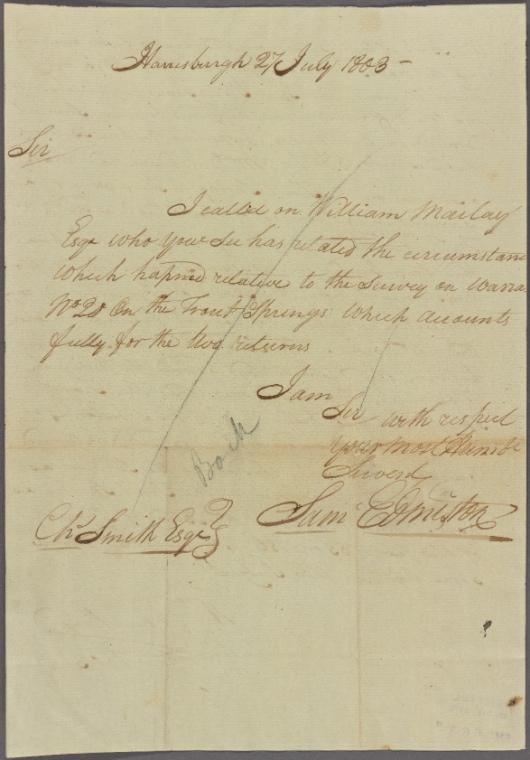 Harrisburgh 27 July 1803 -
Sir
I called on William Maclay
Esqr who your See has related the circumstan
which hapned relative to the Survey on warra
No 20 On the Trout Springs which accounts
fully for the two returns
I am
Sir with respect
your most Humble
Servent
Saml Edmiston
Chs Smith Esqr
Book